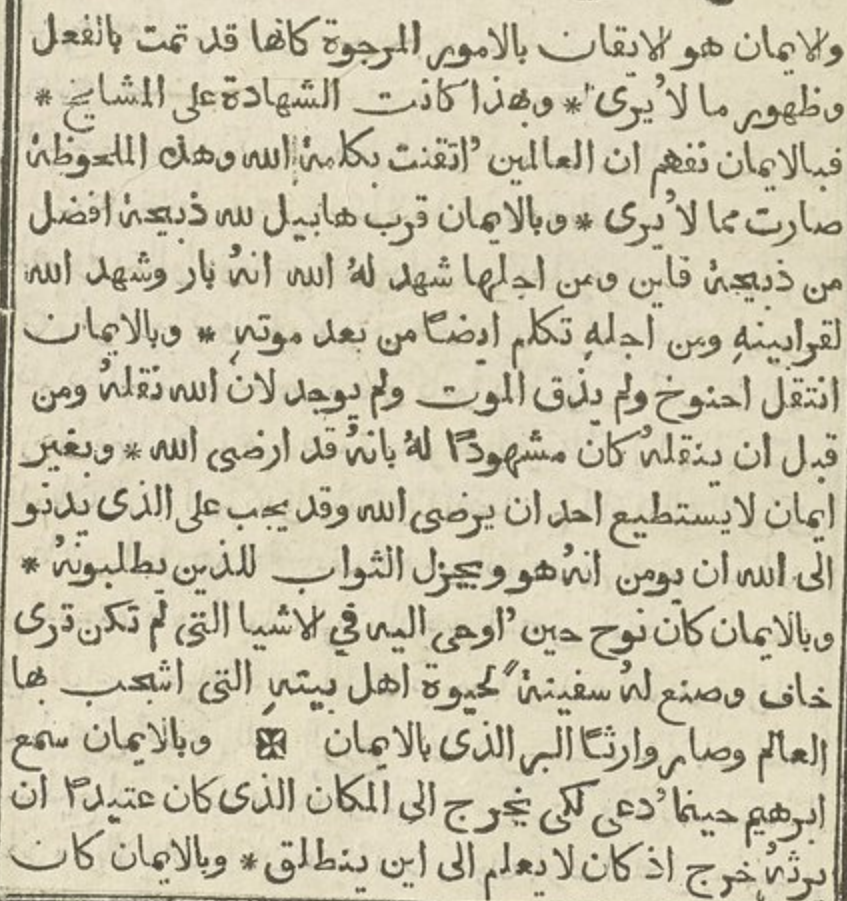 والايمان هو الايقان بالامور المرجوة كانها قد تمت بالفعل
وظهور ما لا يُرى * وبهذا كانت الشهادة على المشايخ *
فبالايمان نفهم ان العالمين اُتقنت بكلمة الله وهذه الملحوظة
صارت مما لا يُرى * وبالايمان قرب هابيل لله ذبيحة افضل
من ذبيحة قاين ومن اجلها شهد لهُ الله انهُ بار وشهد الله
لقرابينهِ ومن اجلهِ تكلم ايضًا من بعد موتهِ * وبالايمان
انتقل احنوخ ولم يذق الموت ولم يوجد لان الله نقلهُ ومن
قبل ان ينقلهُ كان مشهودًا لهُ بانهُ قد ارضى الله * وبغير
ايمان لا يستطيع احد ان يرضى الله وقد يجب على الذى يدنو
الى الله ان يومن انهُ هو ويجزل الثواب للذين يطلبونهُ *
وبالايمان كان نوح حين اُوحى اليه في الاشيا التى لم تكن ترى
خاف وصنع لهُ سفينةً لحيوة اهل بيتهِ التى اشجب بها
العالم وصار وارثًا البر الذى بالايمان ✠ وبالايمان سمع
ابرهيم حينما دُعى لكى يخرج الى المكان الذى كان عتيدًا ان
يرثهُ خرج اذ كان لا يعلم الى اين ينطلق * وبالايمان كان